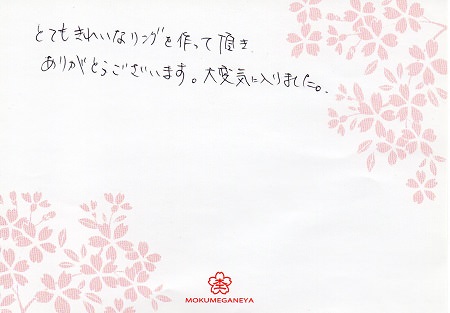 とてもきれいなリングを作って頂き
ありがとうございます。大変気に入りました。
MOKUMEGANEYA